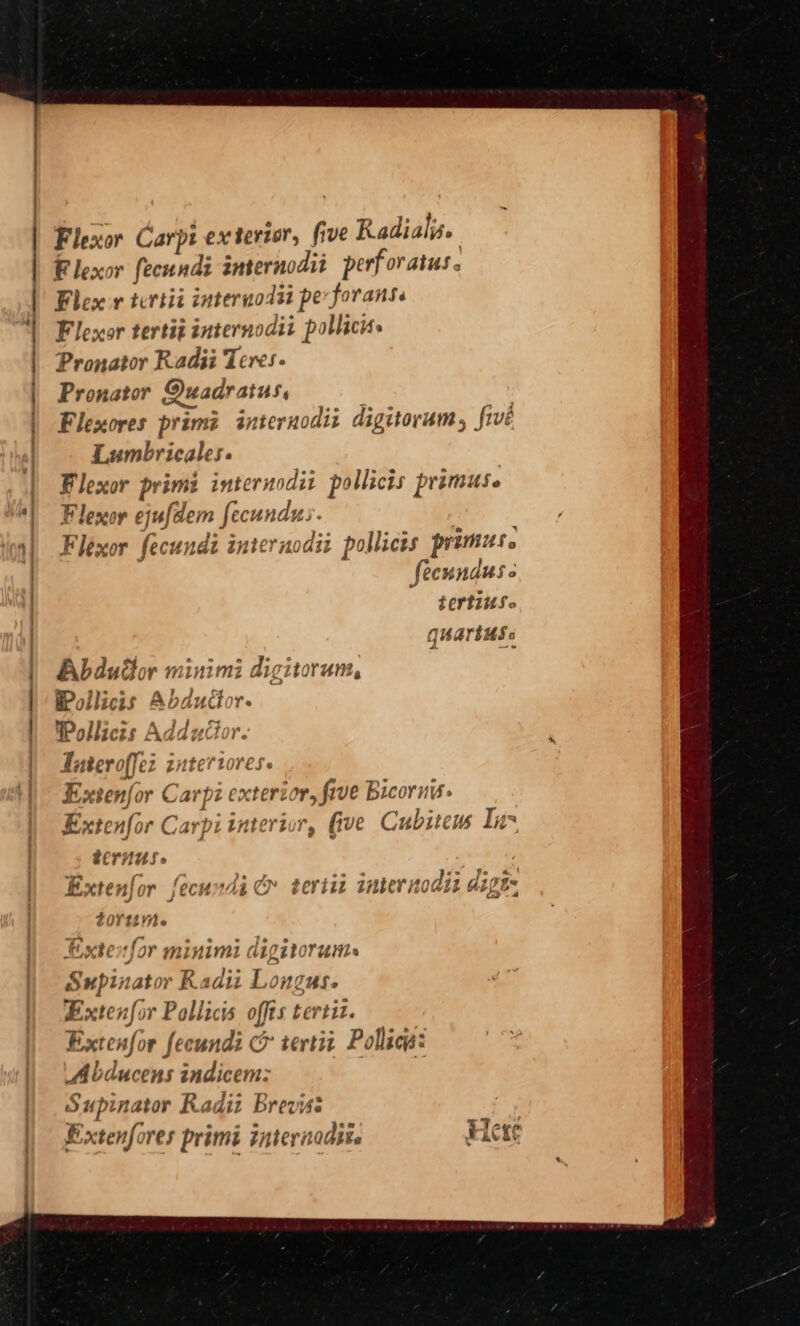 Flexor Carpi exterior, ſive Radialis.
Flexor ſecundi internodii perforatus.
Flexor tertii internodii perforans.
Flexor tertij internodii pollicis.
Pronator Radii Teres.
Pronator Quadratus,
Flexores primi internodii digitorum, ſivé
Lumbricales.
Flexor primi internodii pollicis primus.
Flexor ejuſdem ſecundus.
Flexor ſecundi internodii pollicis primus.
ſecundus.
tertius.
quartus.
Abductor minimi digitorum,
Pollicis Abductor.
Pollicis Adductor.
Interoſſei interiores.
Extenſor Carpi exterior, ſive Bicornis.
Extenſor Carpi interior, ſive Cubiteus In-
ternus.
Extenſor ſecundi & tertii internodii digi-
torum.
Extenſor minimi digitorum.
Supinator Radii Longus.
Extenſor Pollicis oſſis tertii.
Extenſor ſecundi & tertii Pollicis:
Abducens indicem:
Supinator Radii Brevis:
Extenſores primi internodii.
Heré